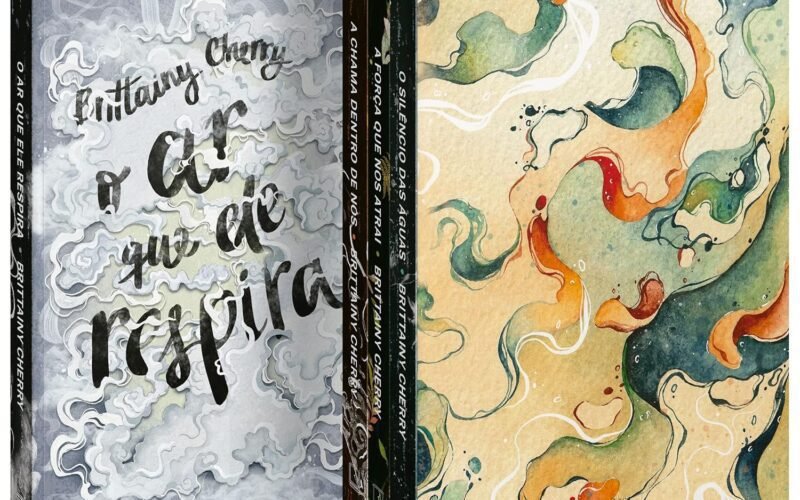 O AR QUE ELE RESPIRA • BRITTAINY CHERRY
Brittainy Cherry
o ar
que ele
respira
A CHAMA DENTRO DE NÓS • BRITTAINY CHERRY
A FORÇA QUE NOS ATRAI • BRITTAINY CHERRY
O SILÊNCIO DAS ÁGUAS • BRITTAINY CHERRY